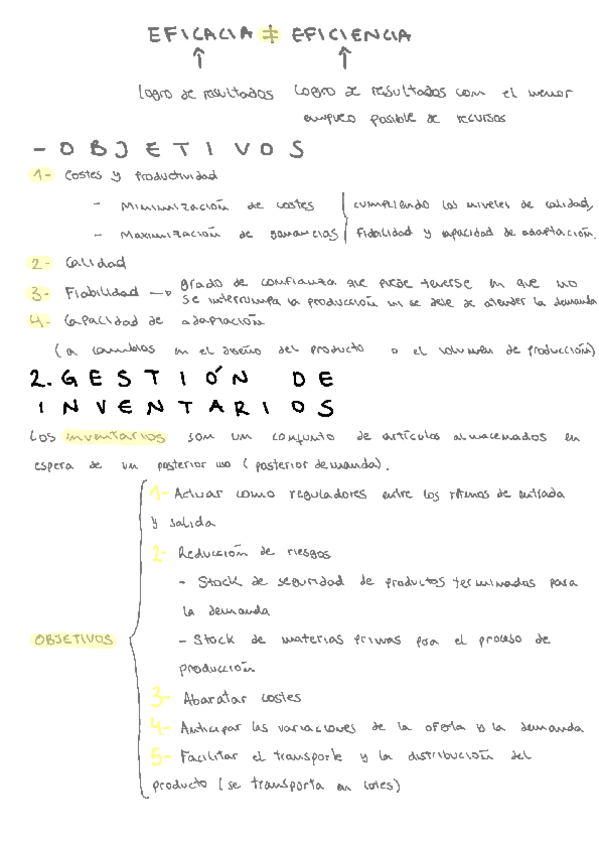 EFICACIA ≠ EFICIENCIA
↑ ↑
logro de resultados logro de resultados con el menor
empleo posible de recursos
- OBJETIVOS
1- Costes y productividad
- Minimización de costes cumpliendo los niveles de calidad,
- Maximización de ganancias fidelidad y capacidad de adaptación.
2- Calidad
3- Fiabilidad → grado de confianza que puede tenerse en que no
se interrumpa la producción ni se deje de atender la demanda
4- Capacidad de adaptación
(a cambios en el diseño del producto o el volumen de producción)
2. GESTIÓN DE
INVENTARIOS
Los inventarios son un conjunto de artículos almacenados en
espera de un posterior uso (posterior demanda).
OBJETIVOS
1- Actuar como reguladores entre los ritmos de entrada
y salida
2- Reducción de riesgos
- Stock de seguridad de productos terminados para
la demanda
- Stock de materias primas para el proceso de
producción
3- Abaratar costes
4- Anticipar las variaciones de la oferta y la demanda
5- Facilitar el transporte y la distribución del
producto (se transporta en lotes)